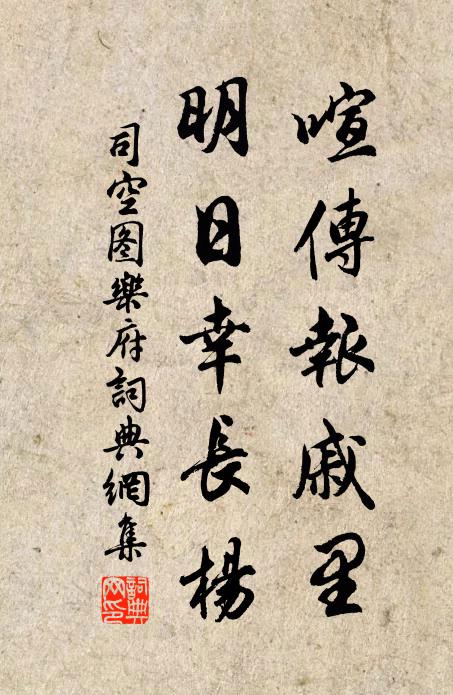 喧傳報戚里
明日幸長楊
司空圖樂府詞典網集
詞典
网印